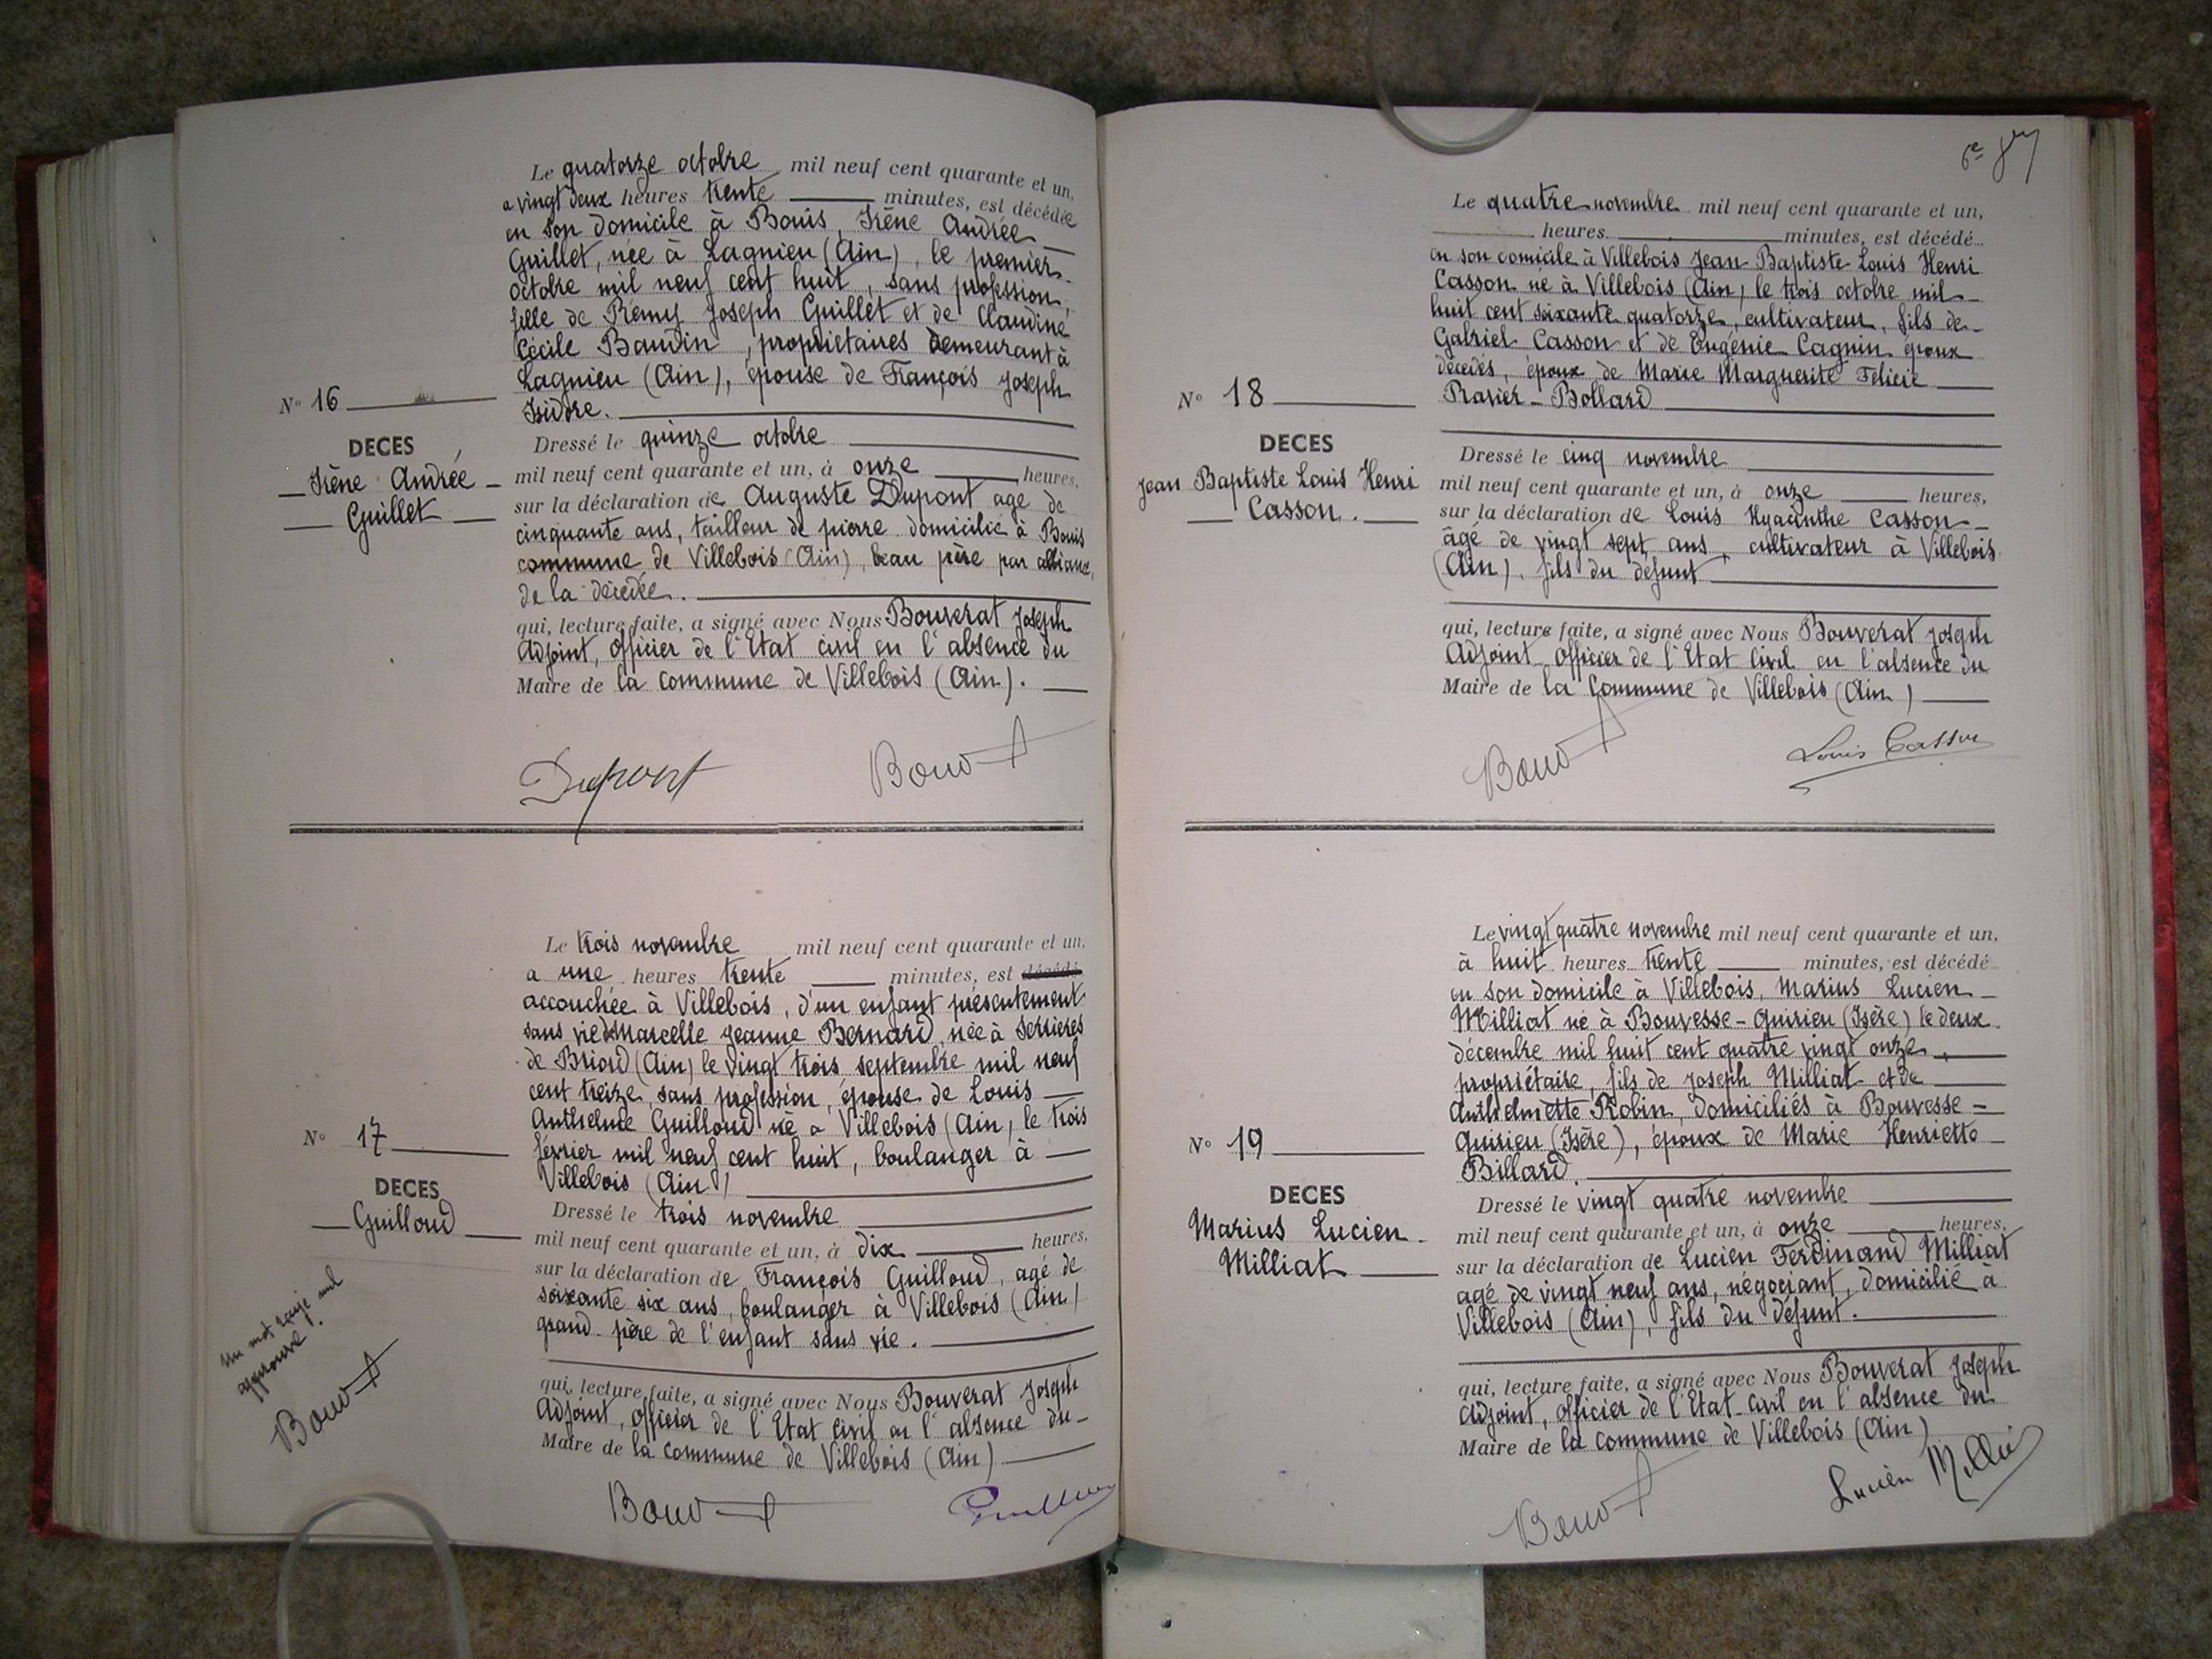 Le quatorze octobre mil neuf cent quarante et un,
a vingt deux heures trente minutes, est décédée
en son domicile à Bouis, Irène Andrée
Guillet, née à Lagnieu (Ain), le premier
octobre mil neuf cent huit, sans profession,
fille de Rémy Joseph Guillet et de Claudine
Cécile Baudin, propriétaires demeurant à
Lagnieu (Ain), épouse de François Joseph
Isidore.
N° 16
DECES
Irène Andrée
Guillet
Dressé le quinze octobre
mil neuf cent quarante et un, à onze heures,
sur la déclaration de Auguste Dupont agé de
cinquante ans, tailleur de pierre domicilié à Bouis
commune de Villebois (Ain), beau père par alliance,
de la décédée.
qui, lecture faite, a signé avec Nous Bouverat Joseph
Adjoint, Officier de l'Etat civil en l'absence du
Maire de la commune de Villebois (Ain).
Dupont
Le trois novembre mil neuf cent quarante et un,
a une heures trente minutes, est décédé
accouchée à Villebois, d'un enfant présentement
sans vie Marcelle Jeanne Bernard, née à Serrières
de Briord (Ain) le vingt trois septembre mil neuf
cent treize, sans profession, épouse de Louis
Anthelme Guilloud né a Villebois (Ain, le trois
février mil neuf cent huit, boulanger à
Villebois (Ain)
N° 17
DECES
Guilloud
Dressé le trois novembre
mil neuf cent quarante et un, à dix heures,
sur la déclaration de François Guilloud, agé de
soixante six ans, boulanger à Villebois (Ain)
grand-père de l'enfant sans vie.
Un mot rayé nul
approuvé!
qui, lecture faite, a signé avec Nous Bouverat Joseph
Adjoint, Officier de l'Etat civil en l'absence du
Maire de la commune de Villebois (Ain)
Le quatre novembre mil neuf cent quarante et un,
heures minutes, est décédé
en son domicile à Villebois Jean Baptiste Louis Henri
Casson né à Villebois (Ain, le trois octobre mil
huit cent soixante quatorze, cultivateur, fils de
Gabriel Casson et de Eugénie Cagnin époux
décédés, époux de Marie Marguerite Félicie
Pravier-Bollard
N° 18
DECES
Jean Baptiste Louis Henri
Casson.
Dressé le cinq novembre
mil neuf cent quarante et un, à onze heures,
sur la déclaration de Louis Hyacinthe Casson
âgé de vingt sept ans, cultivateur à Villebois
(Ain), fils du défunt
qui, lecture faite, a signé avec Nous Bouverat Joseph
Adjoint Officier de l'Etat Civil en l'absence du
Maire de la Commune de Villebois (Ain)
Louis Casson
Le vingt quatre novembre mil neuf cent quarante et un,
à huit heures trente minutes, est décédé
en son domicile à Villebois, Marius Lucien
Milliat né à Bouvesse-Quirieu (Isère) le deux
décembre mil huit cent quatre vingt onze,
propriétaire, fils de Joseph Milliat et de
Anthelmette Robin, domiciliés à Bouvesse-
Quirieu (Isère), époux de Marie Henriette
Billard.
N° 19
DECES
Marius Lucien
Milliat
Dressé le vingt quatre novembre
mil neuf cent quarante et un, à onze heures,
sur la déclaration de Lucien Ferdinand Milliat
agé de vingt neuf ans, négociant, domicilié à
Villebois (Ain), fils du défunt.
qui, lecture faite, a signé avec Nous Bouverat Joseph
Adjoint, Officier de l'Etat civil en l'absence du
Maire de la commune de Villebois (Ain)
Lucien